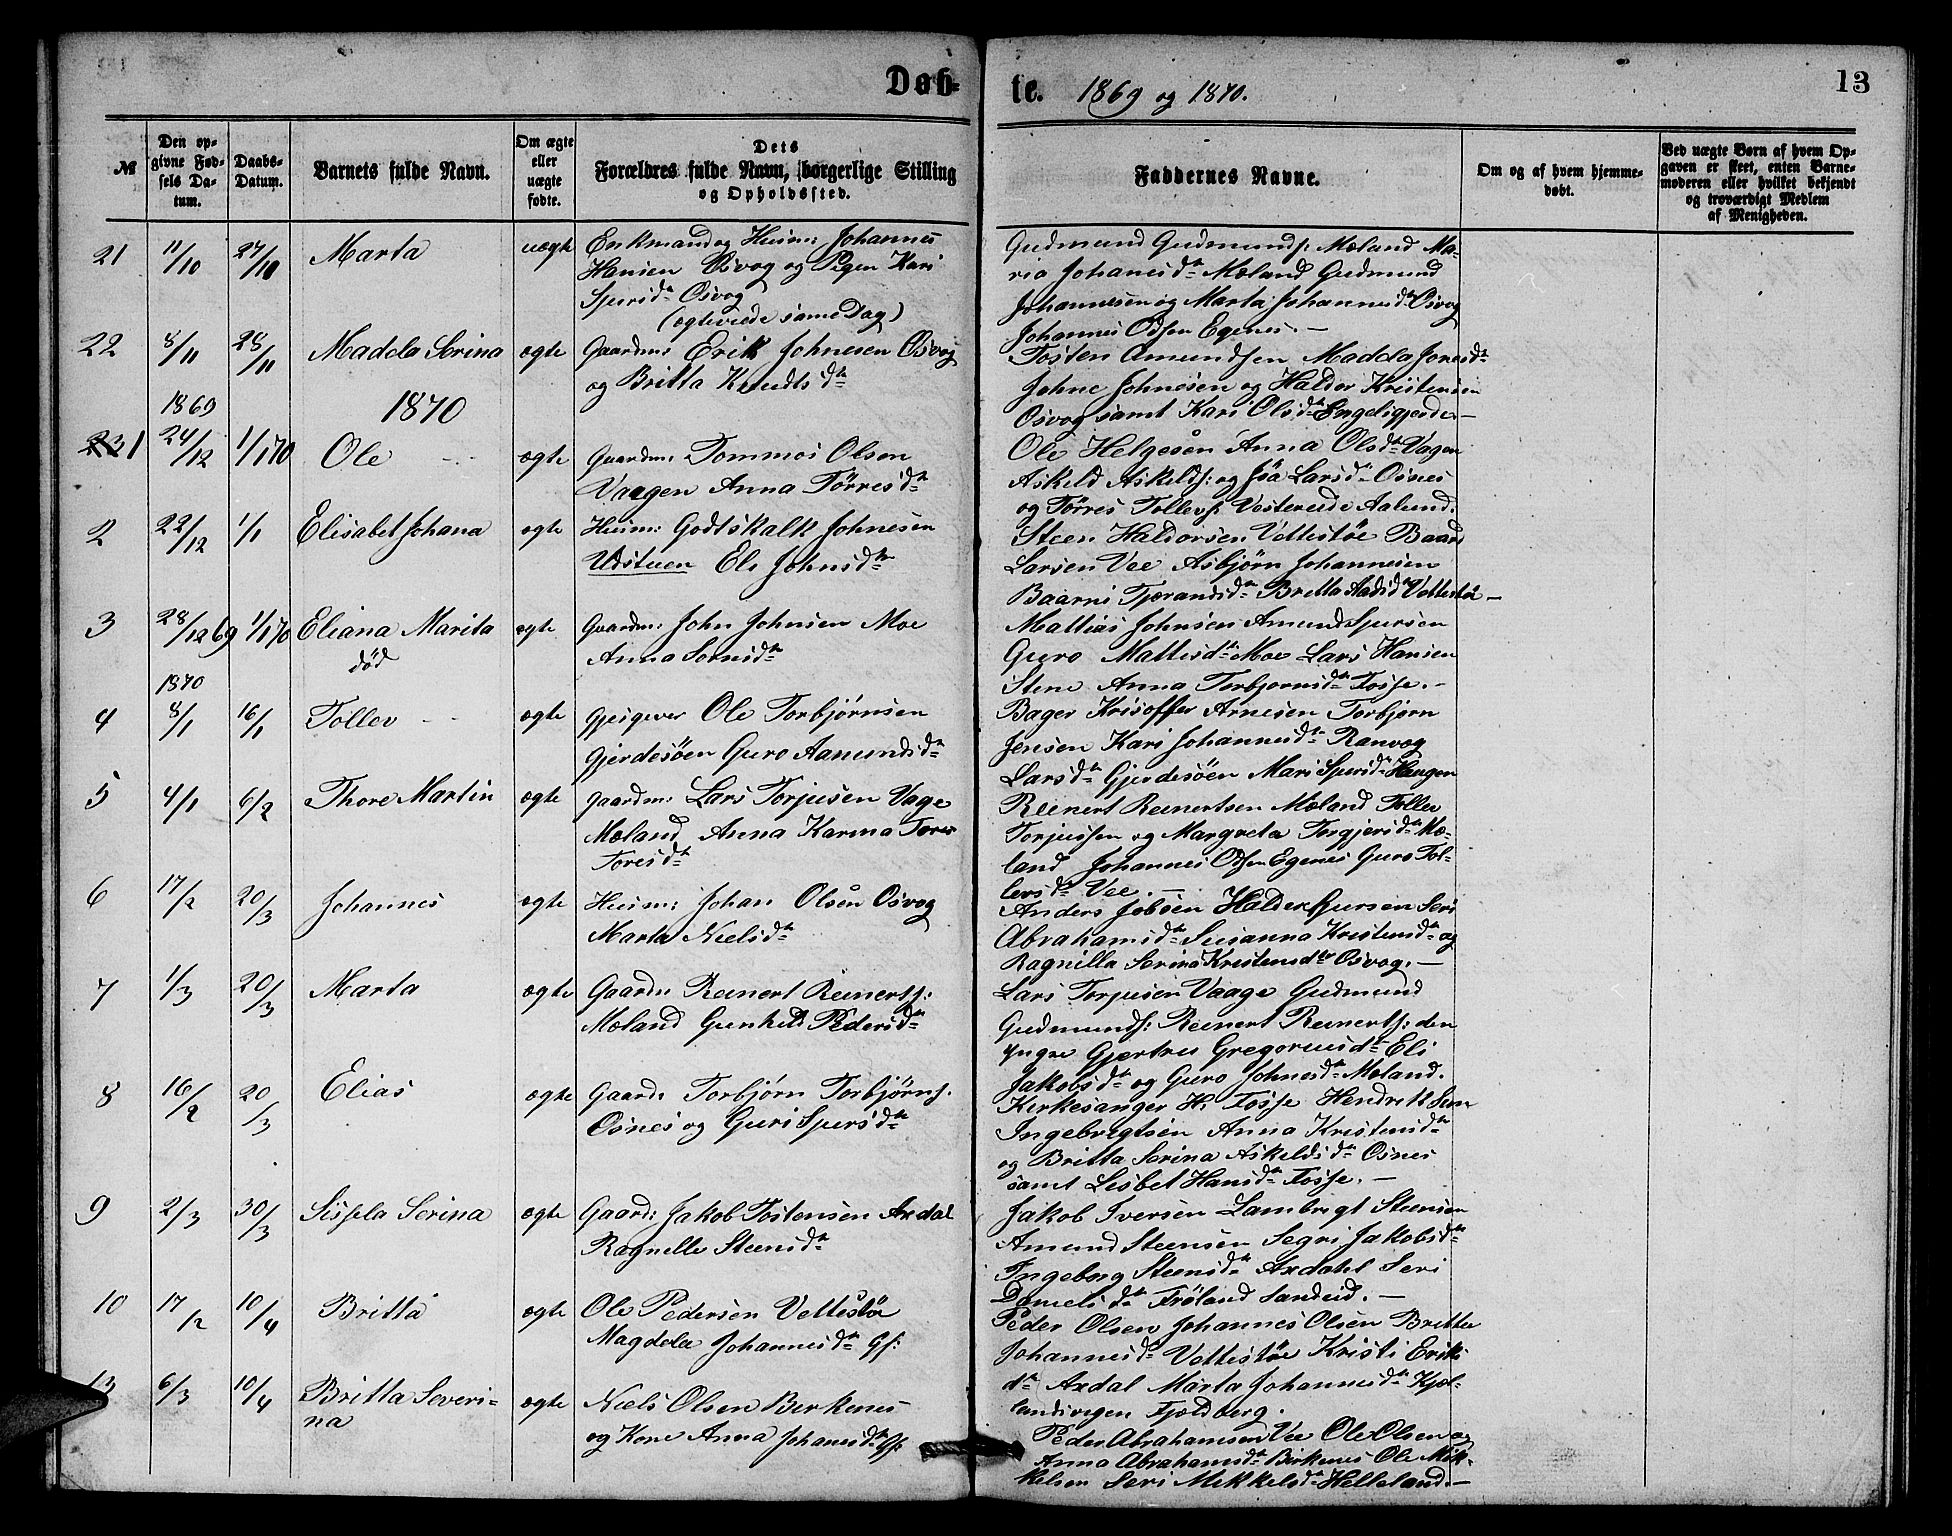 Døb-
te. 1869 og 1870.
13
№
Den op-
givne Fød-
sels Da-
tum.
Daabs-
Datum.
Barnets fulde Navn.
Om ægte
eller
uægte
fødte.
Dets
Forældres fulde Navn, borgerlige Stilling
og Opholdssted.
Faddernes Navne.
Om og af hvem hjemme-
døbt.
Ved uægte Børn af hvem Op-
gaven er skeet, enten Barne-
moderen eller hvilket bekjendt
og troværdigt Medlem
af Menigheden.
21 11/10 27/10 Marta uægte Enkmand og Huusm: Johannes
Hansen Osvog og Pigen Kari
Sjursdt Osvog
(ægteviede same Dag)
Gudmund Gudmunds: Mæland Ma-
ria Johanesdt Mæland Gudmund
Johannesen og Marta Johannesdt Osvog
Johannes Odsen Egenes. —
22 8/11 28/11 Madela Serina ægte Gaardm: Erik Johnesen Osvog
og Britta Knudtsdt
Tosten Amundsen Madda Jonesdt
Johne Johnesen og Haldor Kristensen
Osvog samt Kari Olsdt Engelsgjerde —
1869
1870
23 1 24/12 1/1 70 Ole ægte Gaardm: Tommos Olsen
Vaagen Anna Tørresdt
Ole Helgesen Anna Olsdt Vagen
Askeld Askelds: og Søa Larsdt Osnes
og Tørres Tollevs Vestereide Aalund.
2 22/12 1/1 Elisabet Johana ægte Huusm: Godtskalk Johnesen
Udstuen Eli Johnsdt
Steen Haldorsen Vettestøe Baard
Larsen Vee Asbjørn Johannesen
Baarni Tjerandsdt Britta Aadsdt Vettestø —
3 28/12 69 1/1 70 Eliana Marita ægte Gaardm: John Johnsen Moe
død
Anna Sørensdt
Mattias Johnsen Amund Sjursen
Guro Mattisdt Moe Lars Hansen
Stene Anna Torbjørnsdt Fosse. —
1870
4 8/1 16/1 Tollev ægte Gjesgever Ole Torbjørnsen
Gjerdesøen Guro Aamundsdt
Bager Krisoffer Arnesen Torbjørn
Jensen Kari Johannesdt Ranvog
Larsdt Gjerdesøen Mari Sjursdt Haugen
5 4/1 6/2 Thore Martin ægte Gaardm: Lars Torjusen Vage
Mæland Anna Karina Tores
Toresdt
Reinert Reinertsen Mæland Tollev
Torjussen og Margreta Torgjersdt Mæ-
land Johannes Odsen Egenes Guro Tol-
levsdt Vee. —
6 17/2 20/3 Johannes ægte Huusm: Johan Olsen Osvog
Marta Nielsdt
Anders Jobsen Haldor Sjursen Seri
Abrahamsdt Susanna Kristensdt og
Ragnilla Serina Kristensdt Osvog. —
7 1/3 20/3 Marta ægte Gaardm Reinert Reinerts:
Mæland Gunhild Pedersdt
Lars Torjusen Vaage Gudmund
Gudmunds: Reinert Reinerts: den
yngre Gjertrei Gregoriusdt Eli
Jakobsdt og Guro Johnesdt Mæland.
8 16/2 20/3 Elias ægte Gaard: Torbjørn Torbjørns:
Osnes og Guri Sjursdt
Kirkesanger H. Fosse Hendrik Sem
Ingebrigtsen Anna Kristensdt
og Britta Serina Askeldsdt Osnes
samt Lisbet Hansdt Fosse. —
9 2/3 30/3 Sissela Serina ægte Gaard: Jakob Tostensen Axdal
Ragnelle Steensdt
Jakob Iversen Lambrigt Steensen
Amund Steensen Segri Jakobsdt
Ingeborg Steensdt Axdahl Seri
Danielsdt Frøland Sandeid. —
10 17/2 10/4 Britta ægte Ole Pedersen Vettestøe
Magdela Johannesdt Gf:
Peder Olsen Johannes Olsen Britta
Johannesdt Vettestøe Kristi Eriks
dt Axdal Marta Johannesdt Kjæl-
landsvigen Fjeldberg.
13 6/3 10/4 Britta Severi-
na
ægte Niels Olsen Birkenes
og Kone Anna Johanesdt Gf:
Peder Abrahamsen Vee Ole Olsen og
Anna Abrahamsdt Birkenes Ole Mik-
kelsen Seri Mikkelsdt Helleland. —